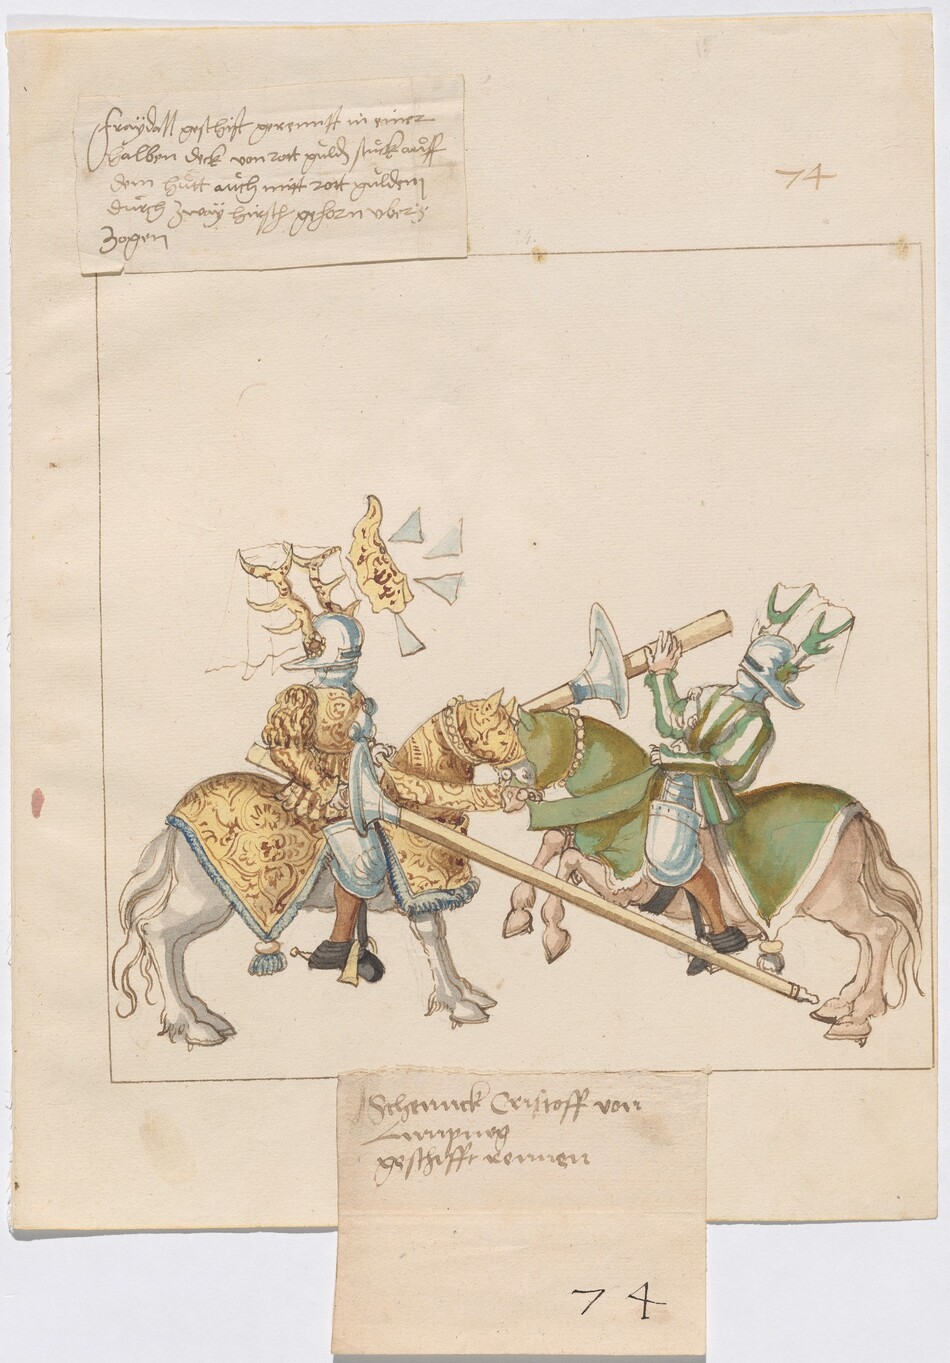 fraÿdall geschift gerennt in einer
halben deck von rott guld stuck auff
dem hutt auch mitt rott gulden
durch zwaÿ hirsch gehorn vber
zogen
74
Schennck Cristoff von
Limpurg
geschifft rennen
74